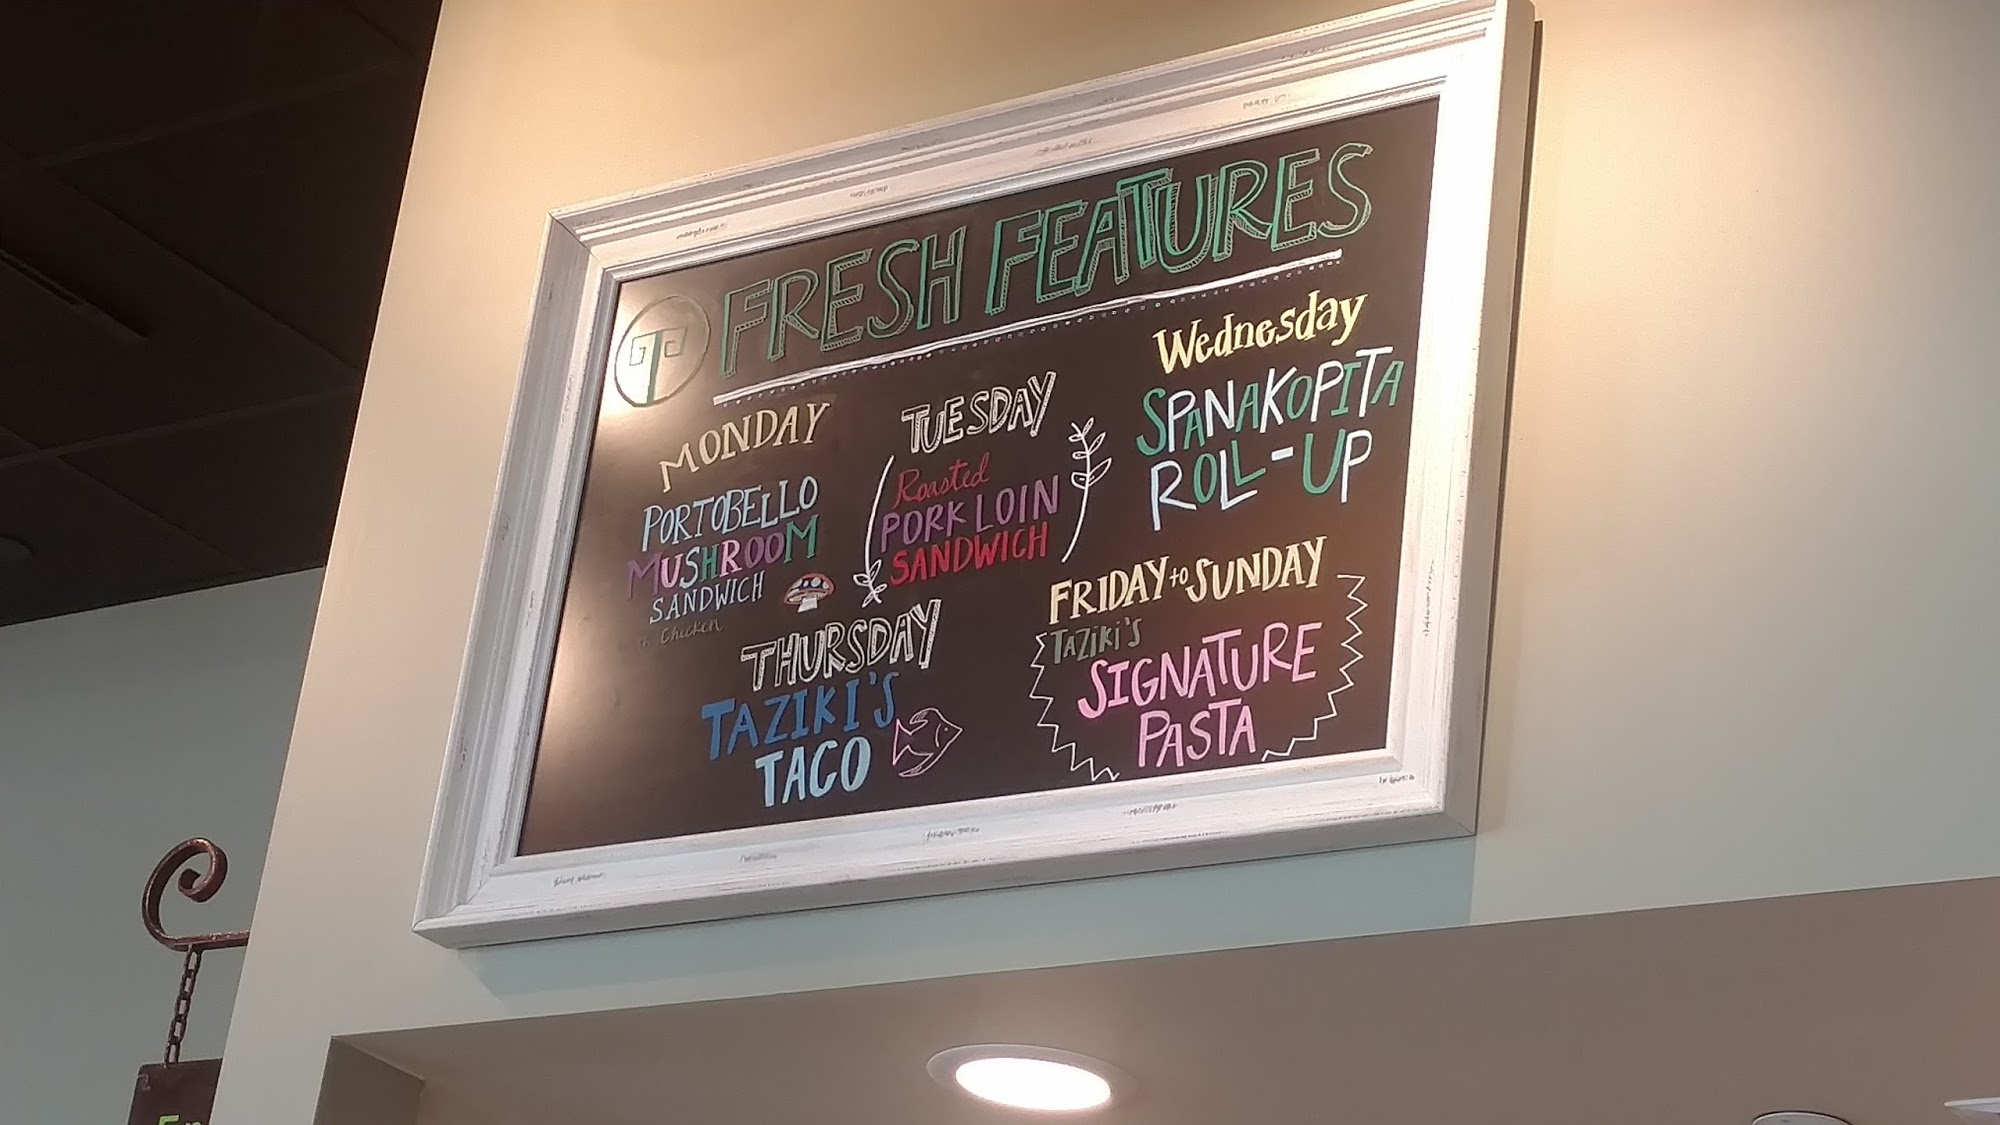 FRESH FEATURES
MONDAY
PORTOBELLO
MUSHROOM
SANDWICH
with Chicken
TUESDAY
Roasted
PORK LOIN
SANDWICH
Wednesday
SPANAKOPITA
ROLL-UP
THURSDAY
TAZIKI'S
TACO
FRIDAY to SUNDAY
TAZIKI'S
SIGNATURE
PASTA